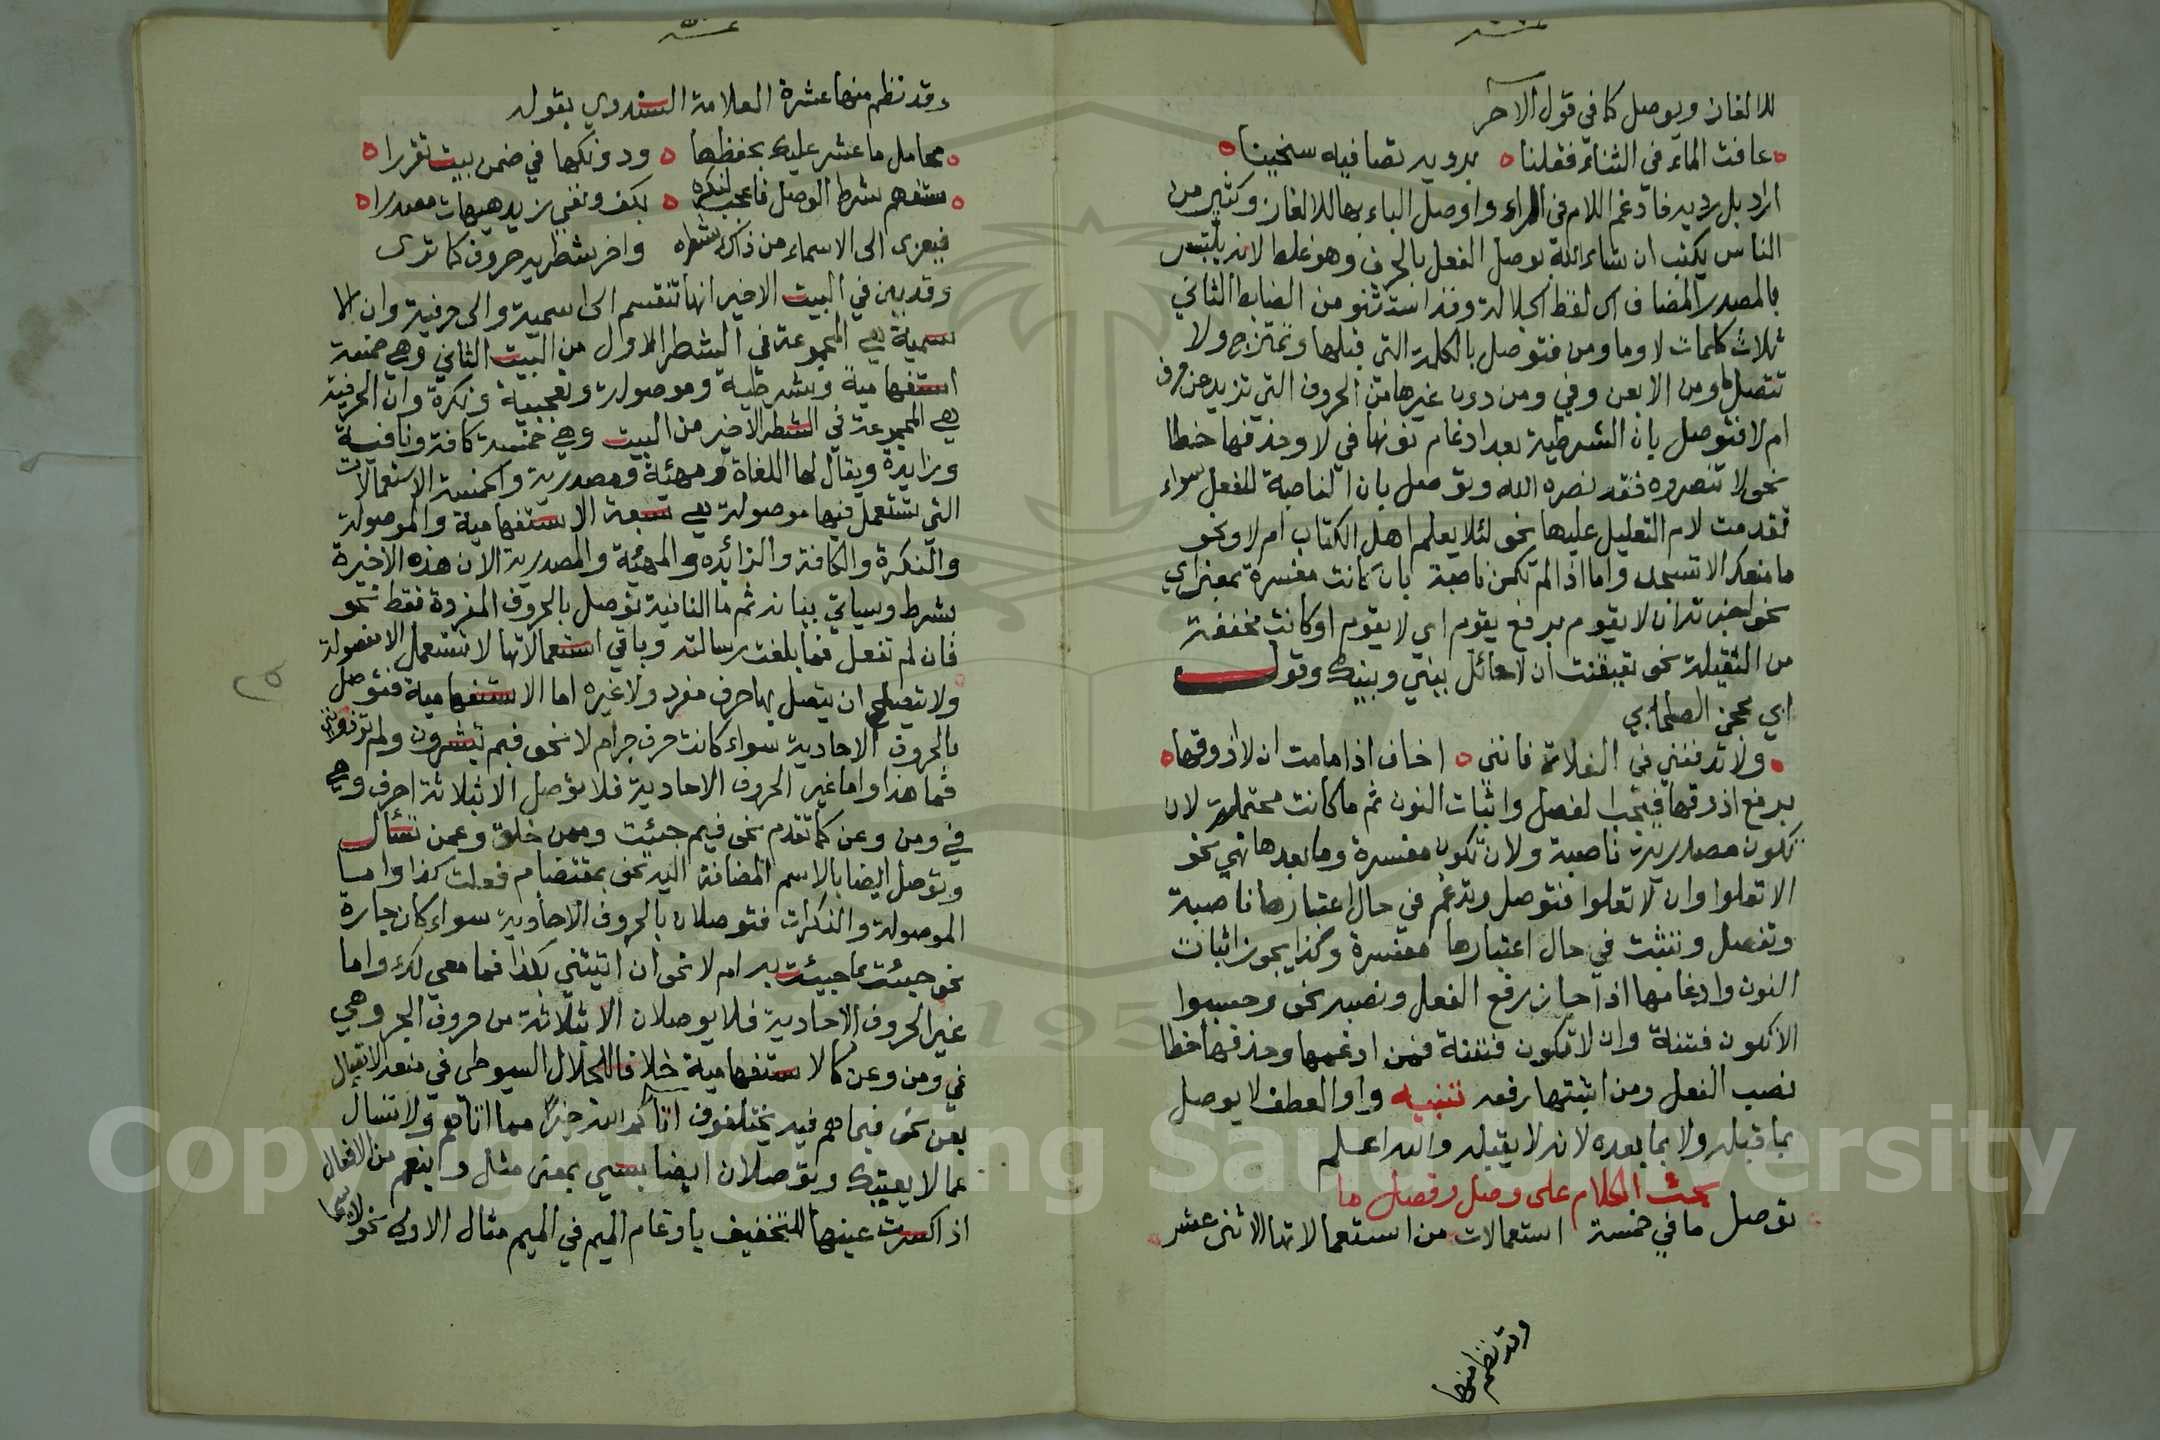 للالغاز ويوصل كما في قول الآخر
عافت الماء في الشتاء فقلنا ه برديه تصادفيه سخينا
اراد بل رديه فادغم اللام في الراء واوصل الباء بها للالغاز وكثير من
الناس يكتب ان شاء الله بوصل الفعل بالحرف وهو غلط لانه يلتبس
بالمصدر المضاف الى لفظ الجلالة وقد استثنو من الضابط الثاني
ثلاث كلمات لا وما ومن فتوصل بالكلمة التي قبلها وتمتزج ولا
تتصل ومن الا بعن وفي ومن دون غيرها من الحروف التي تزيد عن حرف
ام لا فتوصل بان الشرطية بعد ادغام نونها في لا وحذفها خطا
نحو لا تنصروه فقد نصره الله وتوصل بان الناصبة للفعل سواء
تقدمت لام التعليل عليها نحو لئلا يعلم اهل الكتاب ام لا ونحو
ما منعك الا تسجد واما اذا لم تكن ناصبة بان كانت مفسرة بمعنى اي
نحو اخبرته ان لا يقوم برفع يقوم اي لا يقوم او كانت مخففة
من الثقيلة نحو تيقنت ان لا حائل بيني وبينك وقول
ابي محجن الصحابي
ولا تدفنني في الفلاة فانني ه اخاف اذا ما مت ان لا اذوقها
برفع اذوقها فيجب الفصل واثبات النون ثم ما كانت محتملة لان
تكون مصدرية ناصبة ولان تكون مفسرة وما بعدها نهي نحو
الا تعلوا وان لا تعلوا فتوصل وتدغم في حال اعتبارها ناصبة
وتفصل وتثبت في حال اعتبارها مفسرة وكذا يجوز اثبات
النون وادغامها اذا جاز رفع الفعل ونصبه نحو وحسبوا
الا تكون فتنة وان لا تكون فتنة فمن ادغمها وحذفها خطا
نصب الفعل ومن اثبتها رفعه تنبيه واو العطف لا يوصل
بما قبله ولا بما بعده لانه لا يقبله والله اعلم
بحث الكلام على وصل وفصل ما
توصل ما في خمسة استعمالات من استعمالاتها الاثنى عشر
وقد نظم منها
وقد نظم منها عشرة العلامة السندوبي بقوله
محامل ما عشر عليك بحفظها ه ودونكها في ضمن بيت تقررا
ستفهم شرط الوصل فاعجب لنكره ه بكف ونفي زيد هيهات مصدرا
فيعزى الى الاسماء من ذاك شطره واخر شطريه حروف كما ترى
وقد بين في البيت الاخير انها تنقسم الى اسمية والى حرفية وان الا
سمية هي المجموعة في الشطر الاول من البيت الثاني وهي خمسة
استفهامية وشرطية وموصولة وتعجبية ونكرة وان الحرفية
هي المجموعة في الشطر الاخير من البيت وهي خمسة كافة ونافية
وزايدة ويقال لها اللغاة ومهيئة ومصدرية والخمسة الاستعمالات
التي تستعمل فيها موصولة هي سبعة الاستفهامية والموصولة
والنكرة والكافة والزائده والمهيئة والمصدرية الا ان هذه الاخيرة
بشرط وسياتي بيانه ثم ما النافية توصل بالحروف المفردة فقط نحو
فان لم تفعل فما بلغت رسالته وباقي استعمالاتها لا تستعمل الا مفصولة
ولا يصلح ان يتصل بها حرف مفرد ولا غيره اما الاستفهامية فتوصل
بالحروف الاحادية سواء كانت حرف جر ام لا نحو فبم تبشرون ولم تؤذونني
فما هذا واما غير الحروف الاحادية فلا توصل الا بثلاثة احرف وهي
في ومن وعن كما تقدم نحو فيم جيئت ومم خلق وعمن تسأل
وتوصل ايضا بالاسم المضافة اليه نحو بمقتضام فعلت كذا واما
الموصولة والنكرات فتوصلان بالحروف الاحادية سواء كان جارة
نحو جيئت بما جيئت به ام لا نحو ان اتيتني بكذا فما معي لك واما
غير الحروف الاحادية فلا يوصلان الا بثلاثة من حروف الجر وهي
في ومن وعن كما الاستفهامية خلافا للجلال السيوطي في منعه الاتصال
بعن نحو فيما هم فيه يختلفون اتاكم الله خيرا مما اتاهم ولا تسال
عما لا يعنيك وتوصلان ايضا بسي بمعنى مثل وبنعم من الافعال
اذا كسرت عينها للتخفيف بادغام الميم في الميم مثال الاول نحو لا سيما
٢٥
Copyright © King Saud University
195